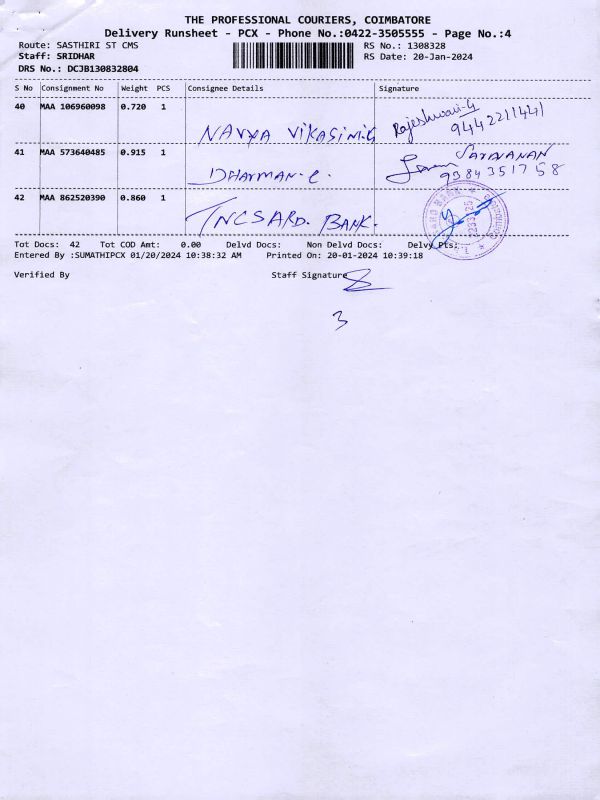 THE PROFESSIONAL COURIERS, COIMBATORE
Delivery Runsheet - PCX - Phone No.:0422-3505555 - Page No.:4
Route: SASTHIRI ST CMS RS No.: 1308328
Staff: SRIDHAR RS Date: 20-Jan-2024
DRS No.: DCJB130832804
S No Consignment No Weight PCS Consignee Details Signature
40 MAA 106960098 0.720 1
NAVYA VIKASINI.G Rajeshwari.G
9442211441
41 MAA 573640485 0.915 1
DHARMAN.C. SARAVANAN
9384351758
42 MAA 862520390 0.860 1
TNCSARD. BANK.
Tot Docs: 42 Tot COD Amt: 0.00 Delvd Docs: Non Delvd Docs: Delvy Pts:
Entered By :SUMATHIPCX 01/20/2024 10:38:32 AM Printed On: 20-01-2024 10:39:18
Verified By Staff Signature
3